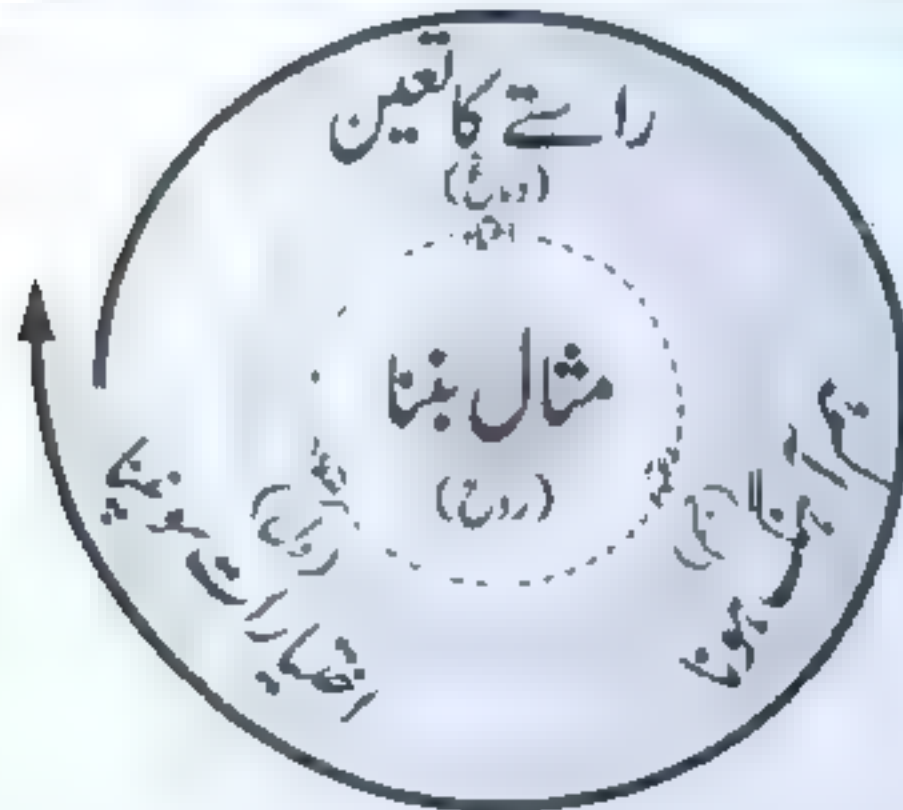 راستے کا تعین
(دماغ)
مثال بننا
(روح)
ہم آہنگ ہونا
(جسم)
اختیارات سونپنا
(دل)